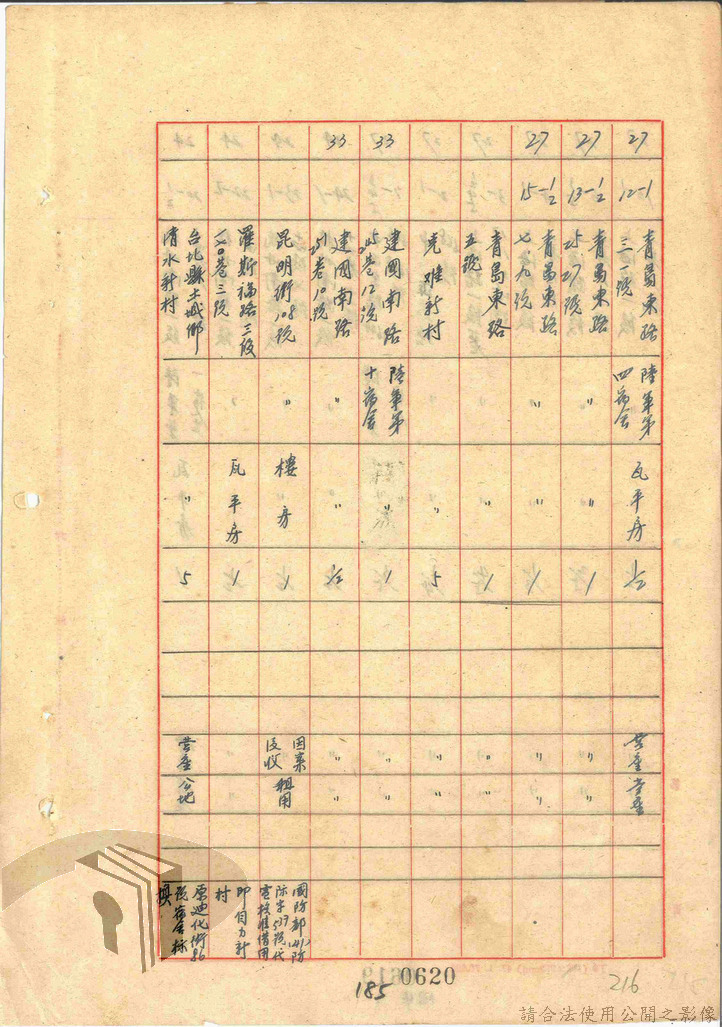 27
12-1
青島東路
三一號
陸軍第
四宿舍
瓦平房
1/2
營產
營產
27
13-1/2
青島東路
25 27號
〃
〃
1
〃
〃
27
15-1/2
青島東路
七九號
〃
〃
1
〃
〃
青島東路
五號
〃
〃
1
〃
〃
克難新村
〃
〃
5
〃
〃
33
建國南路
巷12號
陸軍第
十宿舍
〃
1
〃
〃
33
建國南路
巷10號
〃
〃
1/2
〃
〃
昆明街108號
〃
樓房
1
因案
沒收
租用
國防部
借用
羅斯福路三段
巷三號
〃
瓦平房
1
〃
〃
即自力新
村
台北縣土城鄉
清水新村
〃
5
營產
公地
原迪化街86
號宿舍標
換
0620
185
216
請合法使用公開之影像